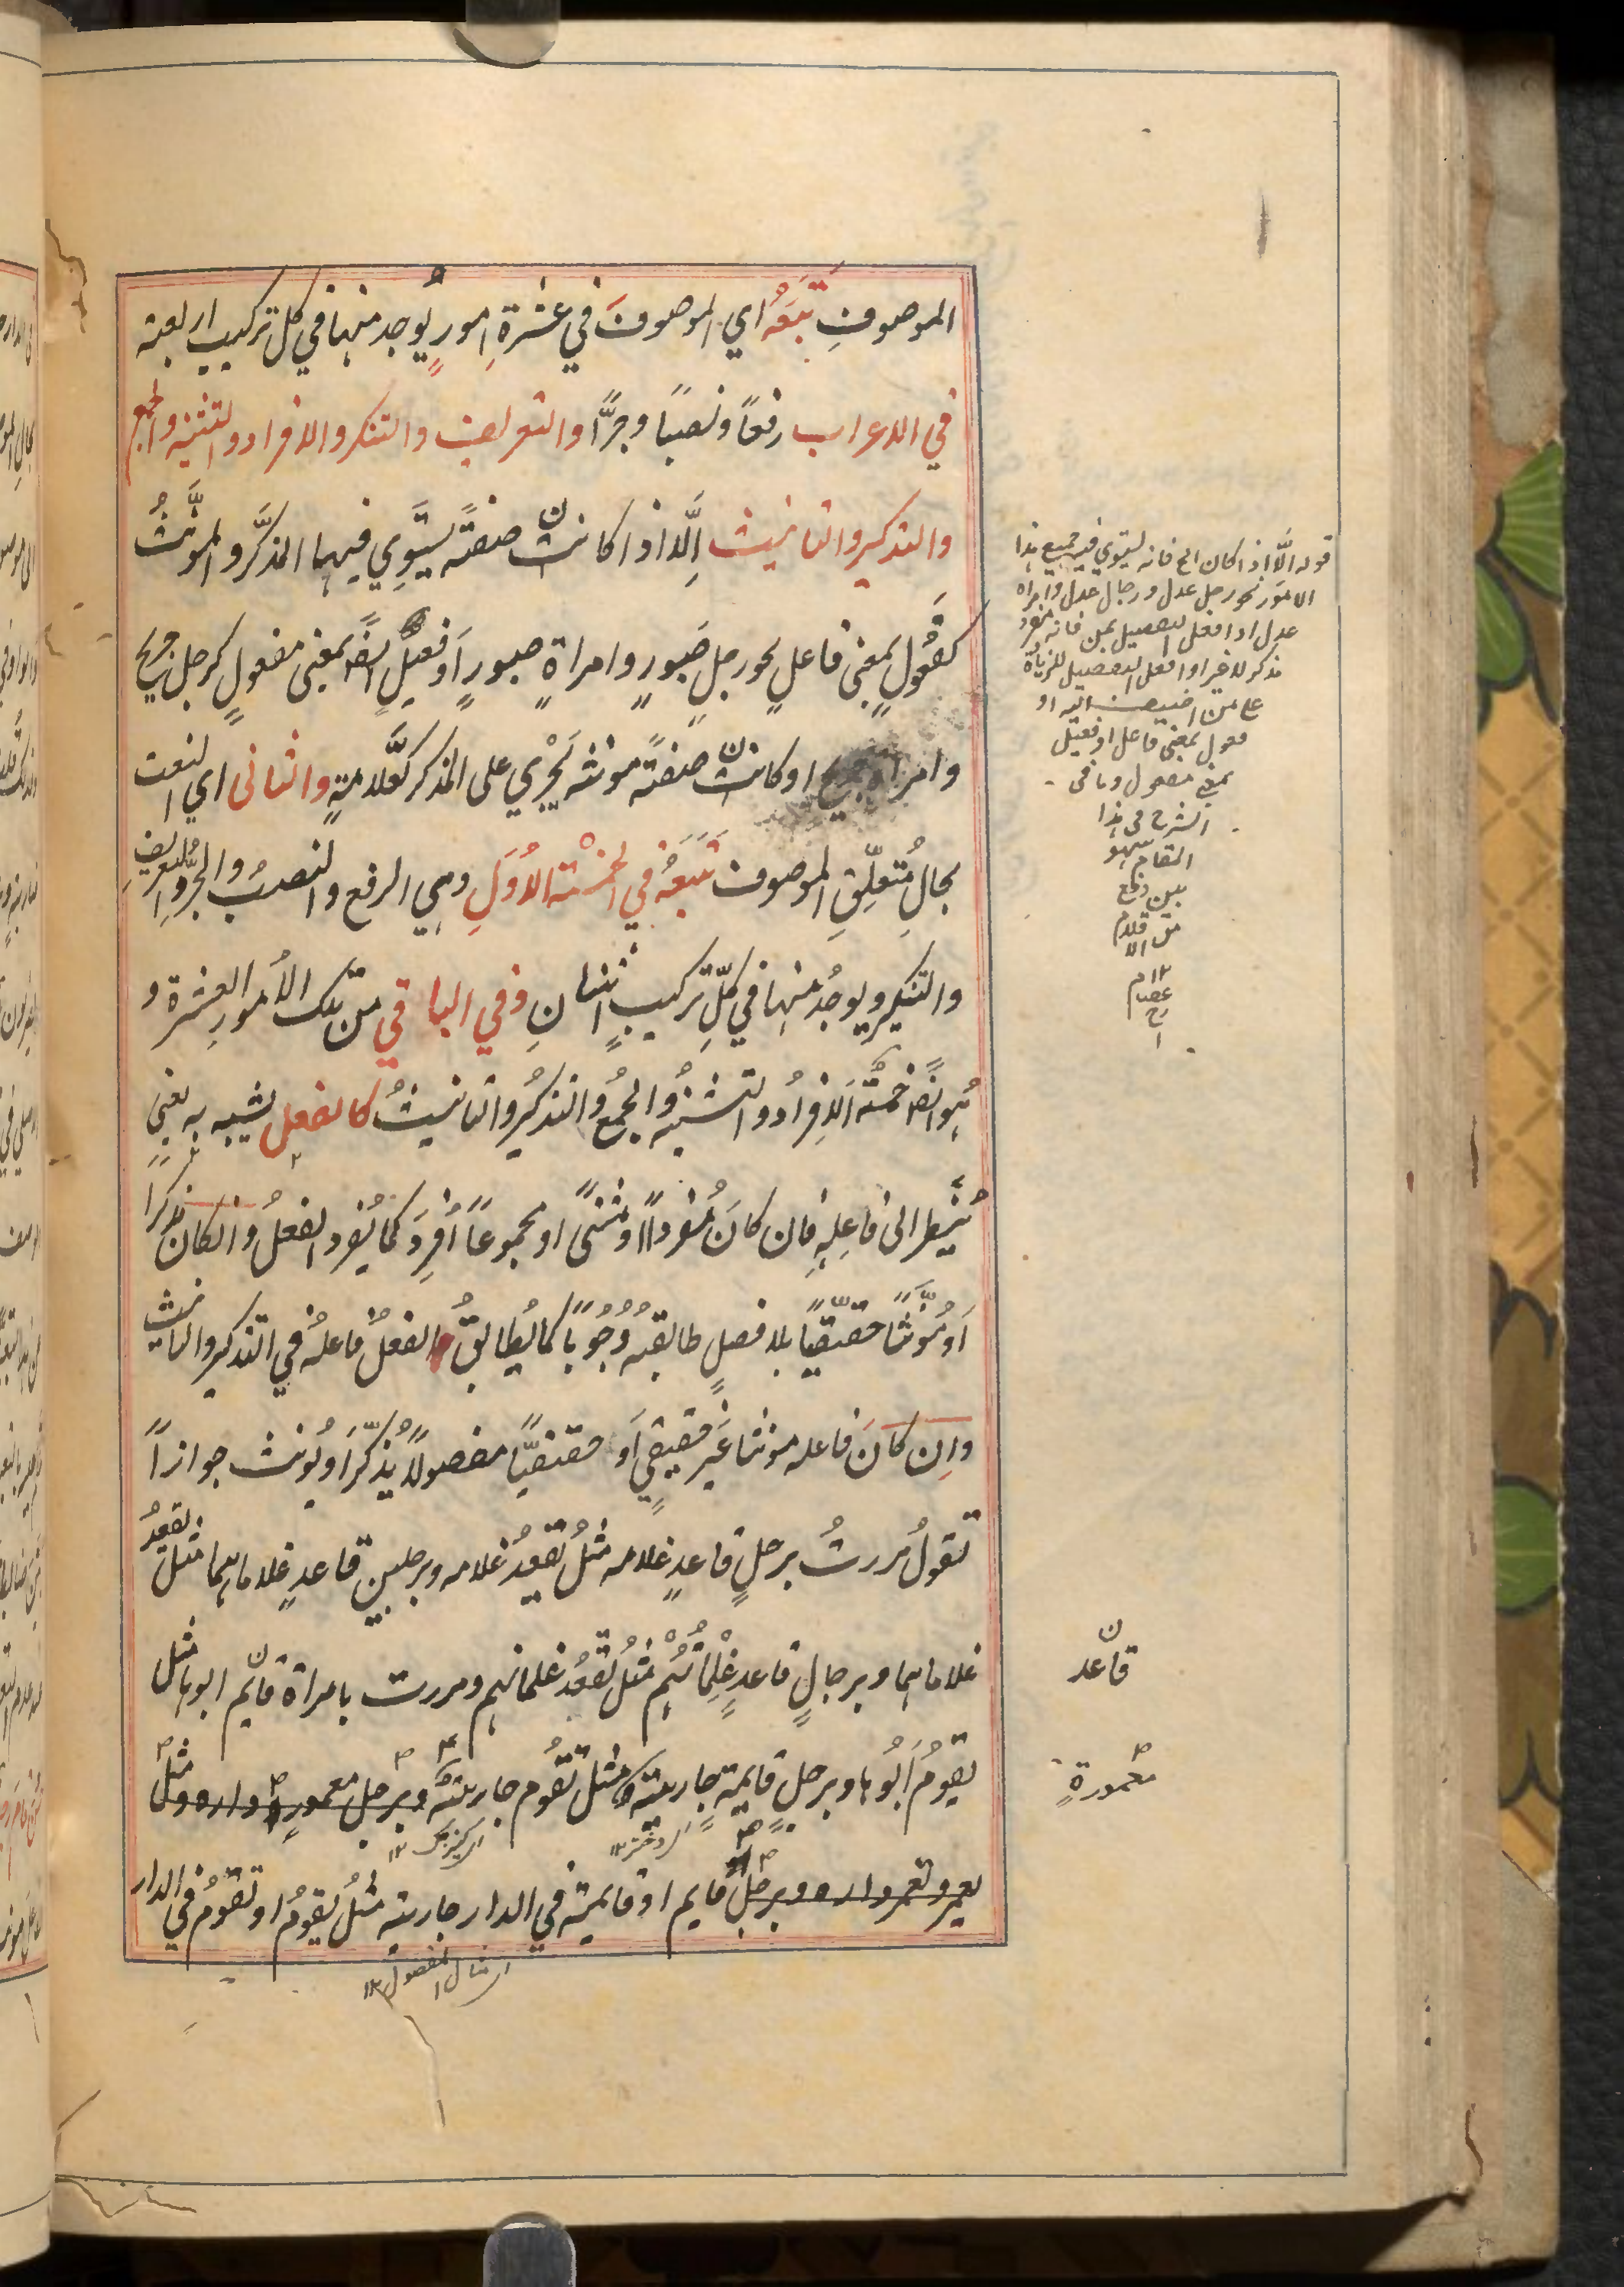 الموصوفِ تَبَعَهُ اي الموصوفَ في عشرةِ امورٍ يُوجد منها في كل تركيب اربعة
في الاعراب رفعًا ونصبًا وجرًّا والتعريف والتنكير والافراد والتثنية والجمع
والتذكير والتانيث اِلّا اذا كانتْ صفتهً يستَوِي فيها المذكَّر والمؤنَّثُ
كفَعُولٍ بمعنى فاعلٍ نحو رجلٍ صَبورٍ وامراةٍ صبورٍ اَو فعيلٍ ايضًا بمعنى مفعولٍ كرجل جريح
وامراة جريح او كانتْ صفتهً مونثه يَجْرِي على المذكر كعَلّامةٍ والثاني اي النعت
بحالِ مُتعلِّقِ الموصوف تَبَعَهُ في الخمْسَة الاُوَلِ وهي الرفع والنصبُ والجرُّ والتعريفِ
والتنكير ويوجدُ منها في كلِّ تركيبٍ اثنانِ وفي الباقي من تلك الاُمورِ العشرة و
هُو ايضًا خمسةٌ اَلاِفرادُ والتثنيهُ والجمعُ والتذكيرُ والتانيثُ كالفعل يشبه به يعني
يُنظر الى فاعِلِهِ فان كانَ مُفردًا او مثنىً او مجموعًا اُفرِدَ كما يُفرد الفعلُ وان كان مذكرًا
اَو مُؤنَّثًا حقيقيًّا بلا فصلٍ طابقهُ وُجُوبًا كما يُطابقُ الفعلُ فاعلهُ في التذكير والتانيث
واِن كانَ فاعله مونثا غيرَ حقيقيٍ اَو حقيقيًّا مفصولًا يُذكّر اَو يُونث جوازًا
تقولُ مررتُ برجلٍ قاعدٍ غلامه مثلُ يقعدُ غلامه وبرجلين قاعدٍ غلاماهما مثل يقعدُ
غلاماهما وبرجالٍ قاعدٍ غِلْمانُهُم مثلُ يقعدُ غلمانهم ومررت بامراة قايم ابوها مثل
يقومُ اَبُوها وبرجلٍ قايمةٍ جاريته مثل تقُوم جاريتهُ وبرجل معمورٍ داره مثل
يعمر وتعمر داره وبرجلٍ قايم او قايمة في الدار جاريته مثلُ يقومُ او تقومُ في الدار
قوله الّا اذا كان الخ فانه يستوي فيه جميع هذا
الامور نحو رجل عدل ورجال عدل وامراه
عدل او افعل التفضيل بمن فانه مفرد
مذكر لا غير او افعل التفضيل للزيادة
على من اضيف اليه او
فعول بمعنى فاعل او فعيل
بمعنى مفعول وما في
الشرح في هذا
المقام سهو
١٢م
عصام
رح
قاعد
معمورةٍ